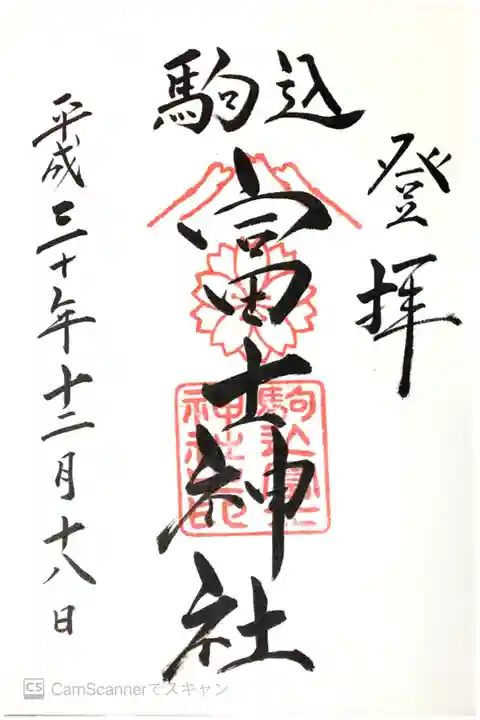 登拝
駒込
冨士神社
駒込富士
神社之印
平成三十年十二月十八日
CS CamScannerでスキャン